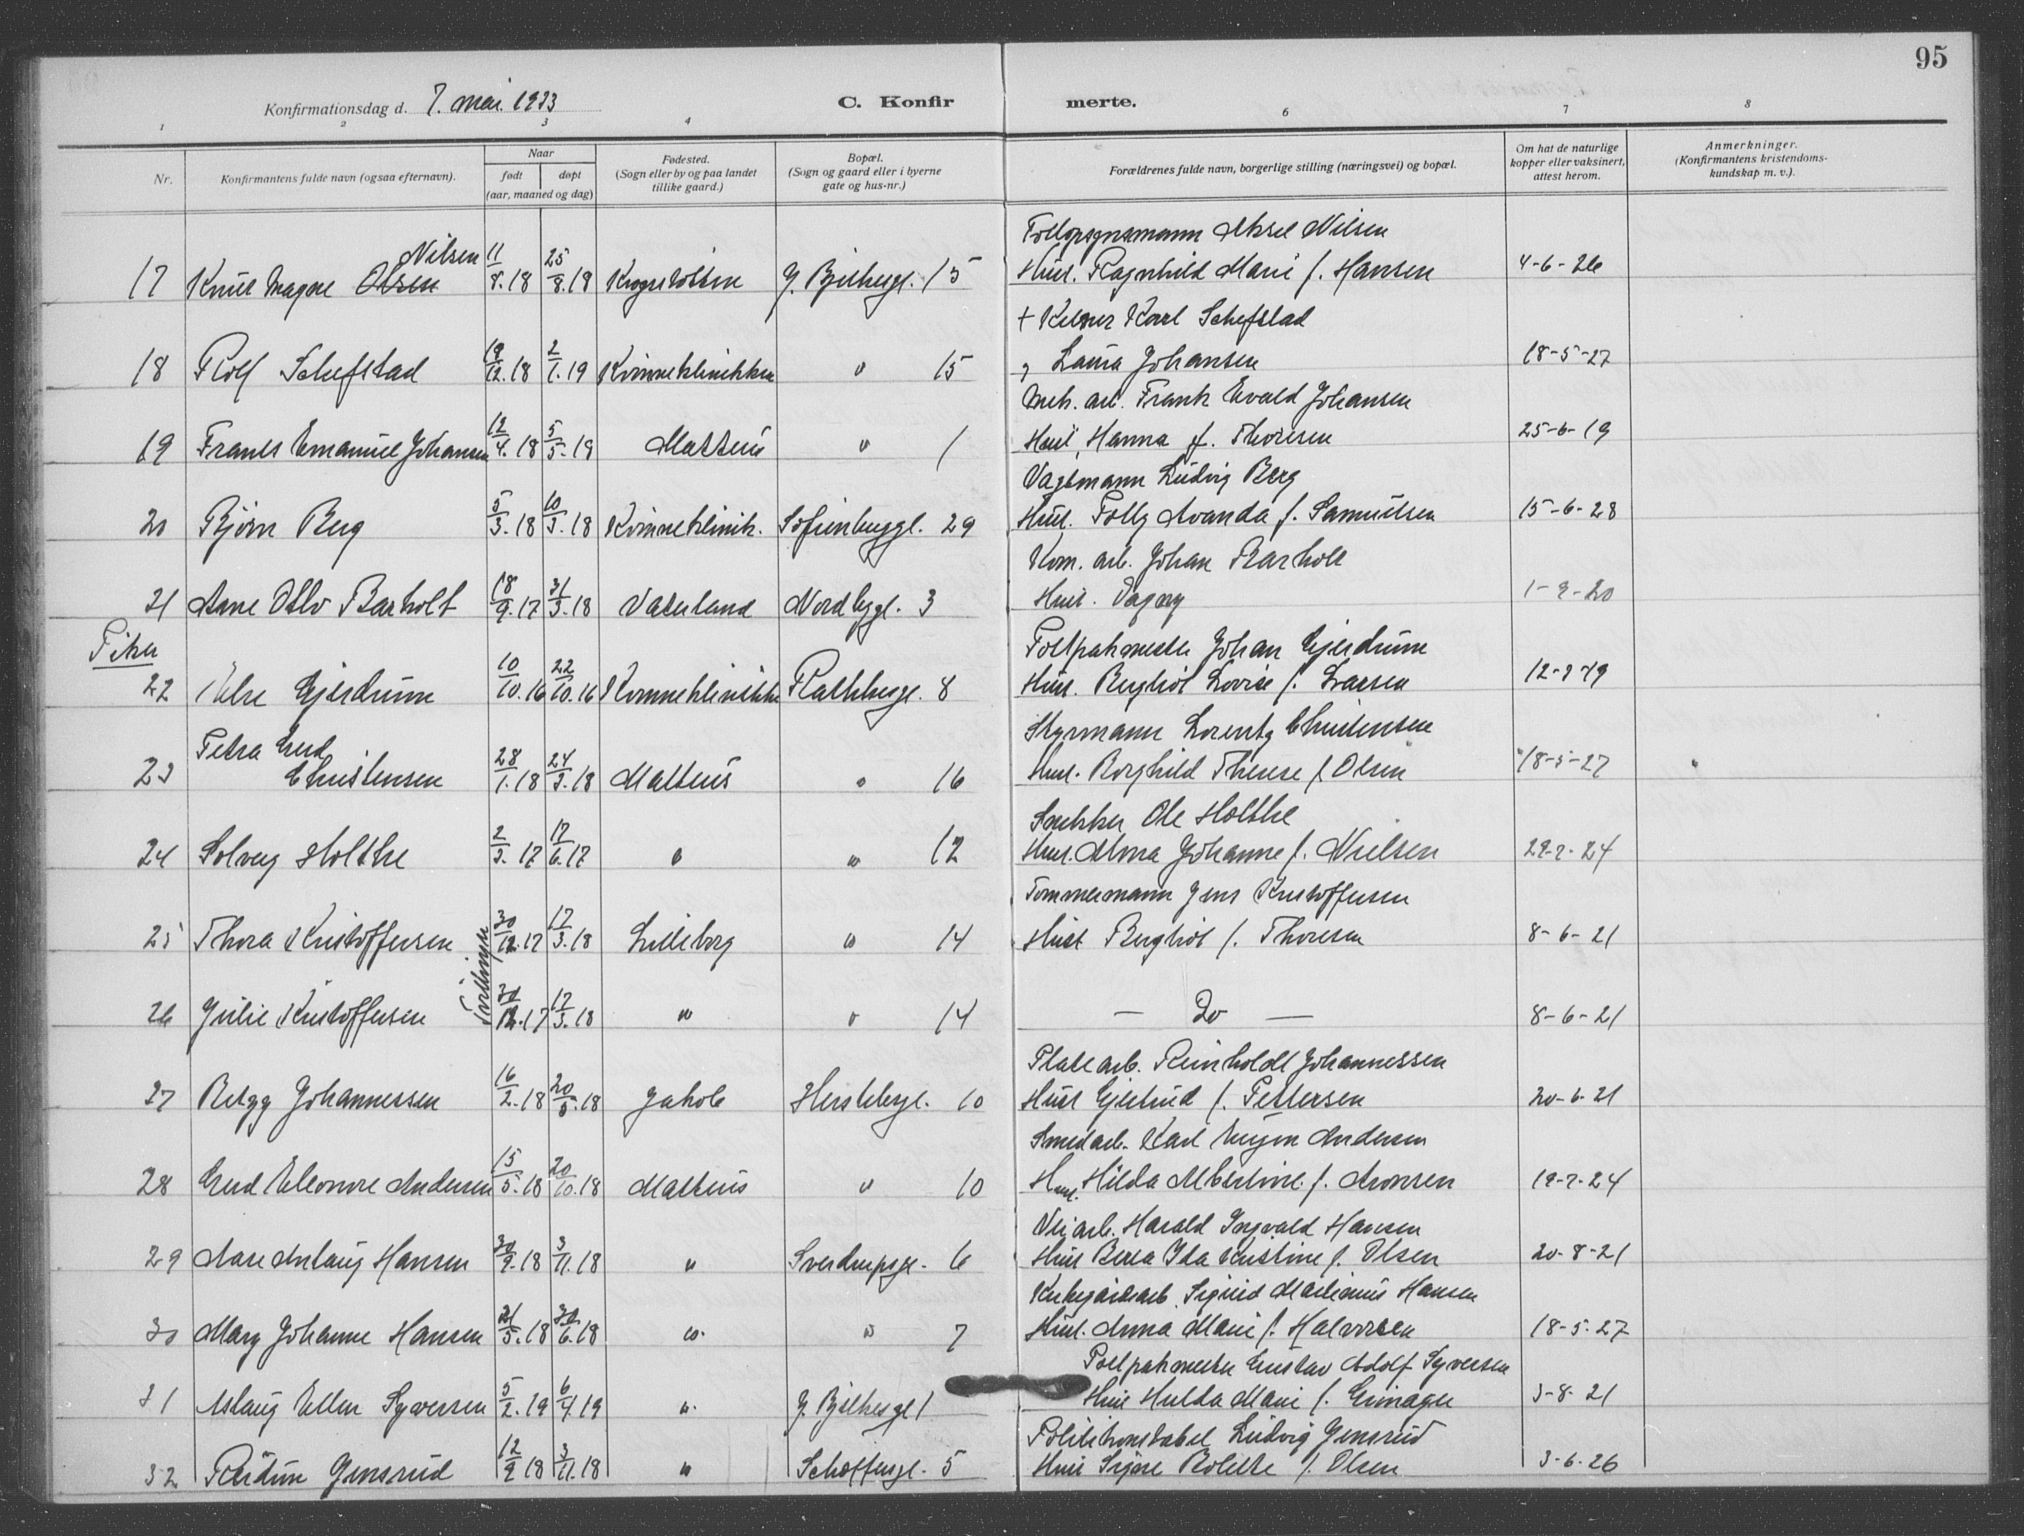 95
Konfirmationsdag d. 7. mai 1933
C. Konfirmerte.
1 2 3 4 6 7 8
Nr.
Konfirmantens fulde navn (ogsaa efternavn).
Naar
født døpt
(aar, maaned og dag)
Fødested.
(Sogn eller by og paa landet
tillike gaard.)
Bopæl.
(Sogn og gaard eller i byerne
gate og hus-nr.)
Forældrenes fulde navn, borgerlige stilling (næringsvei) og bopæl.
Om hat de naturlige
kopper eller vaksinert,
attest herom.
Anmerkninger.
(Konfirmantens kristendoms-
kundskap m. v.).
Aksel Nilsen
Nilsen
17 Knut Magne Olsen 11/8.18 25/8.18 15 Hust. Ragnhild Marie f. Hansen 4-6-26
+ Kelner Karl Schefstad
18 Rolf Schefstad 19/12.18 2/1.19 Kvinneklinikken " 15 " Laura Johansen 18-5-27
Mek. arb. Frank Evald Johansen
19 Frants Emanuel Johansen 12/4.18 5/5.19 Matteus " 1 Hust. Hanna f. Thoresen 25-6-19
Vagtmann Ludvig Berg
20 Bjørn Berg 5/3.18 10/3.18 Kvinneklinik. Sofienberggt. 29 Hust. Polly Avanda f. Samuelsen 15-6-28
Kom. arb. Johan Barholt
21 Arne Otto Barholt 18/9.17 31/3.18 Vaterland Nordbygt. 3 Hust. Dagny 1-9-20
Piker
Johan Gjerdrum
22 Else Gjerdrum 10/10.16 22/10.16 Kvinneklinikken Rathkesgt. 8 Hust. Bergliot Lovise f. Larsen 12-9-19
Styrmann Lorentz Christensen
Petra Gerd
23 Christensen 28/1.18 24/3.18 Matteus " 16 Hust. Borghild Therese f. Olsen 18-5-27
Snekker Ole Holthe
24 Solveig Holthe 2/3.17 17/6.17 " " 12 Hust. Alma Johanne f. Nielsen 29-7-24
Tømmermann Jens Kristoffersen
25 Thora Kristoffersen 30/12.17 17/3.18 Lilleborg " 14 Hust Bergliot f. Thoresen 8-6-21
Tvillinger
26 Julie Kristoffersen 30/12.17 17/3.18 " " 14 — Do — 8-6-21
Platearb. Reinholdt Johannessen
27 Betzy Johannessen 16/2.18 20/5.18 Jakob Herslebsgt. 10 Hust Gjertrud f. Pettersen 20-6-21
Smedarb. Karl Eugen Andersen
28 Gerd Eleonore Andersen 15/5.18 20/10.18 Matteus " 10 Hust. Hilda Albertine f. Aronsen 19-7-24
Veiarb. Harald Ingvald Hansen
29 Aase Anlaug Hansen 30/9.18 3/11.18 " Sverdrupsgt. 6 Hust Berta Ida Kristine f. Olsen 20-8-21
Kirkegårdsarb. Sigurd Marianus Hansen
30 Mary Johanne Hansen 21/5.18 30/6.18 " " 7 Hust. Anna Marie f. Halvorsen 18-5-27
Gustav Adolf Syversen
31 Aslaug Ellen Syversen 5/2.19 6/4.19 " 1 Hust Hulda Marie f. 3-8-21
Politikonstabel Ludvig Jensrud
32 Reidun Jensrud 12/9 18 3/11.18 " 5 Hust Signe Bolette f. Olsen 3-6-26